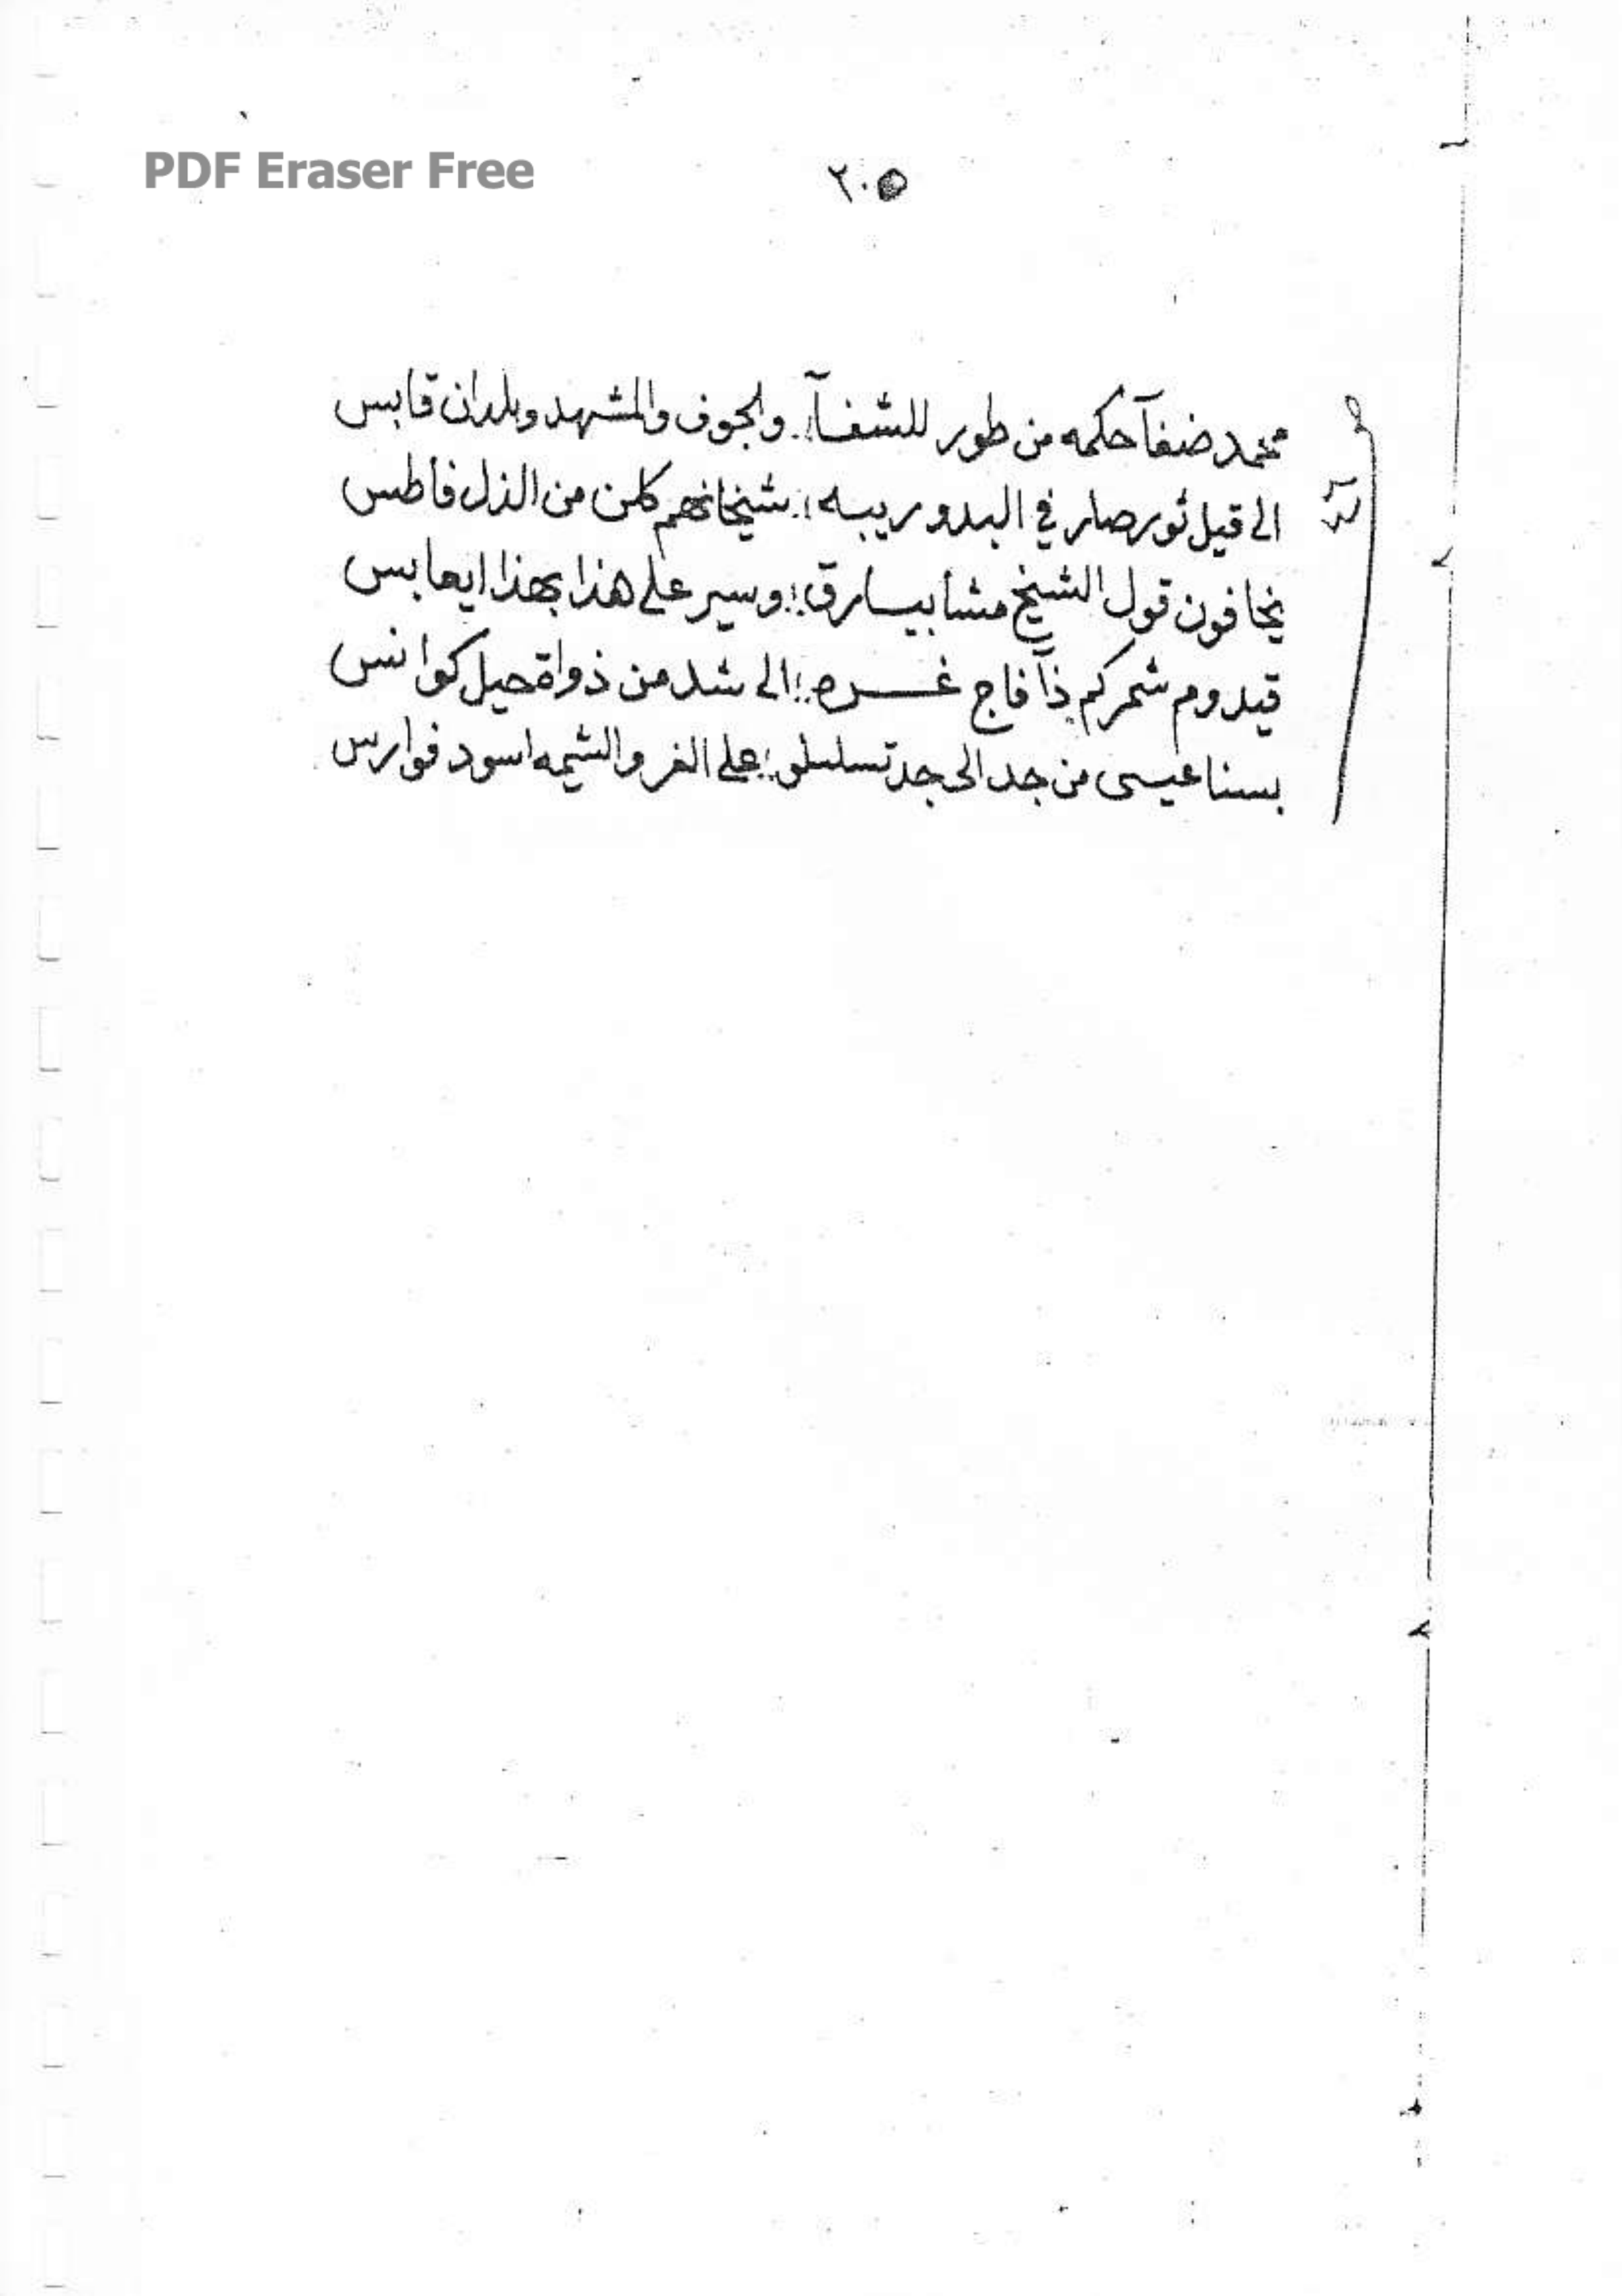 PDF Eraser Free
٢٠٥
محمد ضفآ حكمه من طور للشفآ .. والجوف والمشهد وبلدان قابس
الى قيل ثور صار في البدو ريبه :. شيخانهم كلهن من الذل فاطس
يخافون قول الشيخ مشا بيسارق :. وسير على هذا بهذا ايعابس
قيدوم شمركم ذآ فاج غره :. الى شد من ذواة حيل كوانس
بسنا عيسى من جد الى جد تسلسلو :. على الغر والشيمه اسود فوارس